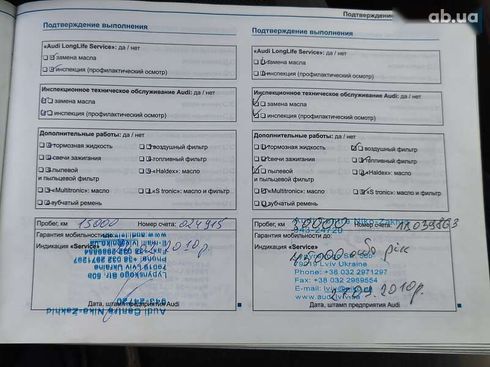 ab.ua
Подтверждение
Подтверждение выполнения
«Audi LongLife Service»: да / нет
замена масла
инспекция (профилактический осмотр)
Инспекционное техническое обслуживание Audi: да / нет
замена масла
инспекция (профилактический осмотр)
Дополнительные работы: да / нет
тормозная жидкость
воздушный фильтр
свечи зажигания
топливный фильтр
пылевой
и пыльцевой фильтр
«Haldex»: масло
«Multitronic»: масло
«S tronic»: масло и фильтр
зубчатый ремень
Пробег, км 15000 Номер счета: 024915
Гарантия мобильности до:
Индикация «Service»
2010р.
Lviv Ukraine
Audi Centre Nika-Zakhid
Дата, штамп предприятия Audi
Подтверждение выполнения
«Audi LongLife Service»: да / нет
замена масла
инспекция (профилактический осмотр)
Инспекционное техническое обслуживание Audi: да / нет
замена масла
инспекция (профилактический осмотр)
Дополнительные работы: да / нет
тормозная жидкость
воздушный фильтр
свечи зажигания
топливный фильтр
пылевой
и пыльцевой фильтр
«Haldex»: масло
«Multitronic»: масло
«S tronic»: масло и фильтр
зубчатый ремень
Пробег, км 30000 Номер счета:
Гарантия мобильности до:
Индикация «Service»
45000 або рік
79019 Lviv Ukraine
Phone: +38 032 2971297
Fax: +38 032 2989554
E-mail:
2010р.
Дата, штамп предприятия Audi